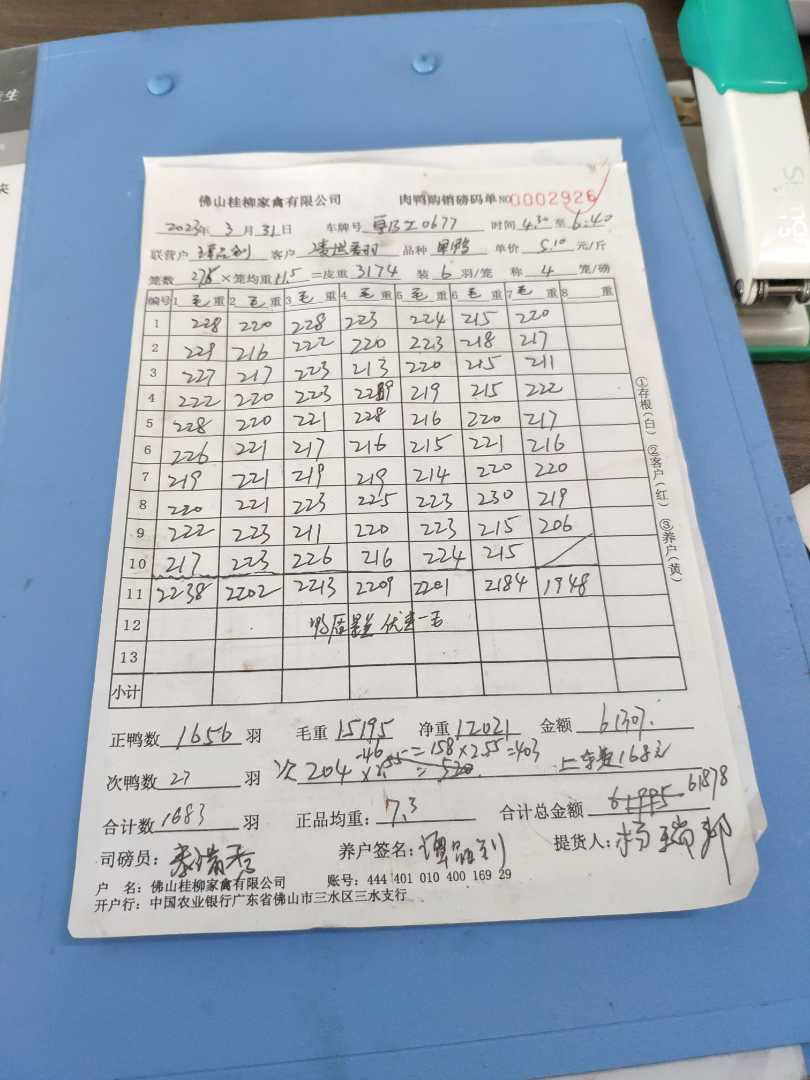 佛山桂柳家禽有限公司 肉鸭购销磅码单 NO 0002926
2023年 3 月 31 日 车牌号 0677 时间 4.30 至 6:40
联营户 客户 品种 单价 5.10 元/斤
笼数 276 ×笼均重 11.5 =皮重 3174 装 6 羽/笼 称 4 笼/磅
编号 1 毛 重 2 毛 重 3 毛 重 4 毛 重 5 毛 重 6 毛 重 7 毛 重 8 重
1 228 220 228 223 224 215 220
2 229 216 222 220 223 218 217
3 227 217 223 213 220 215 211
4 222 220 223 219 215 222
5 228 220 221 228 216 220 217
6 226 221 217 216 215 221 216
7 219 221 219 219 214 220 220
8 220 221 223 225 223 230 219
9 222 223 211 220 223 215 206
10 217 223 226 216 224 215
11 2238 2202 2213 2209 2201 2184 1948
12 优惠一毛
13
小计
正鸭数 1656 羽 毛重 15195 净重 12021 金额 61307.
次鸭数 27 羽 次 204 -46 =158×2.55=403 上车费168元
合计数 1683 羽 正品均重: 7.3 合计总金额 61878
司磅员: 养户签名: 谭品钊 提货人: 杨瑞邦
户 名: 佛山桂柳家禽有限公司 账号: 444 401 010 400 169 29
开户行: 中国农业银行广东省佛山市三水区三水支行
①存根(白) ②客户(红) ③养户(黄)